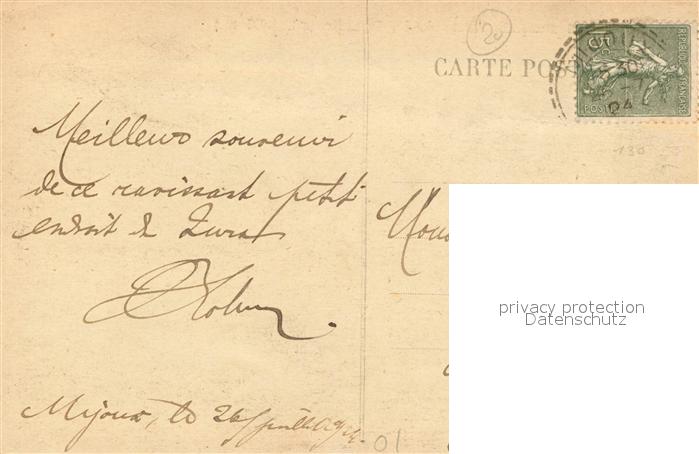 20
CARTE POS
REPUBLIQUE FRANÇAISE
15
Meilleurs souvenir
de ce ravissant petit
endroit du Jura
Mijoux, le 26 juillet 1924.
130
01
privacy protection
Datenschutz